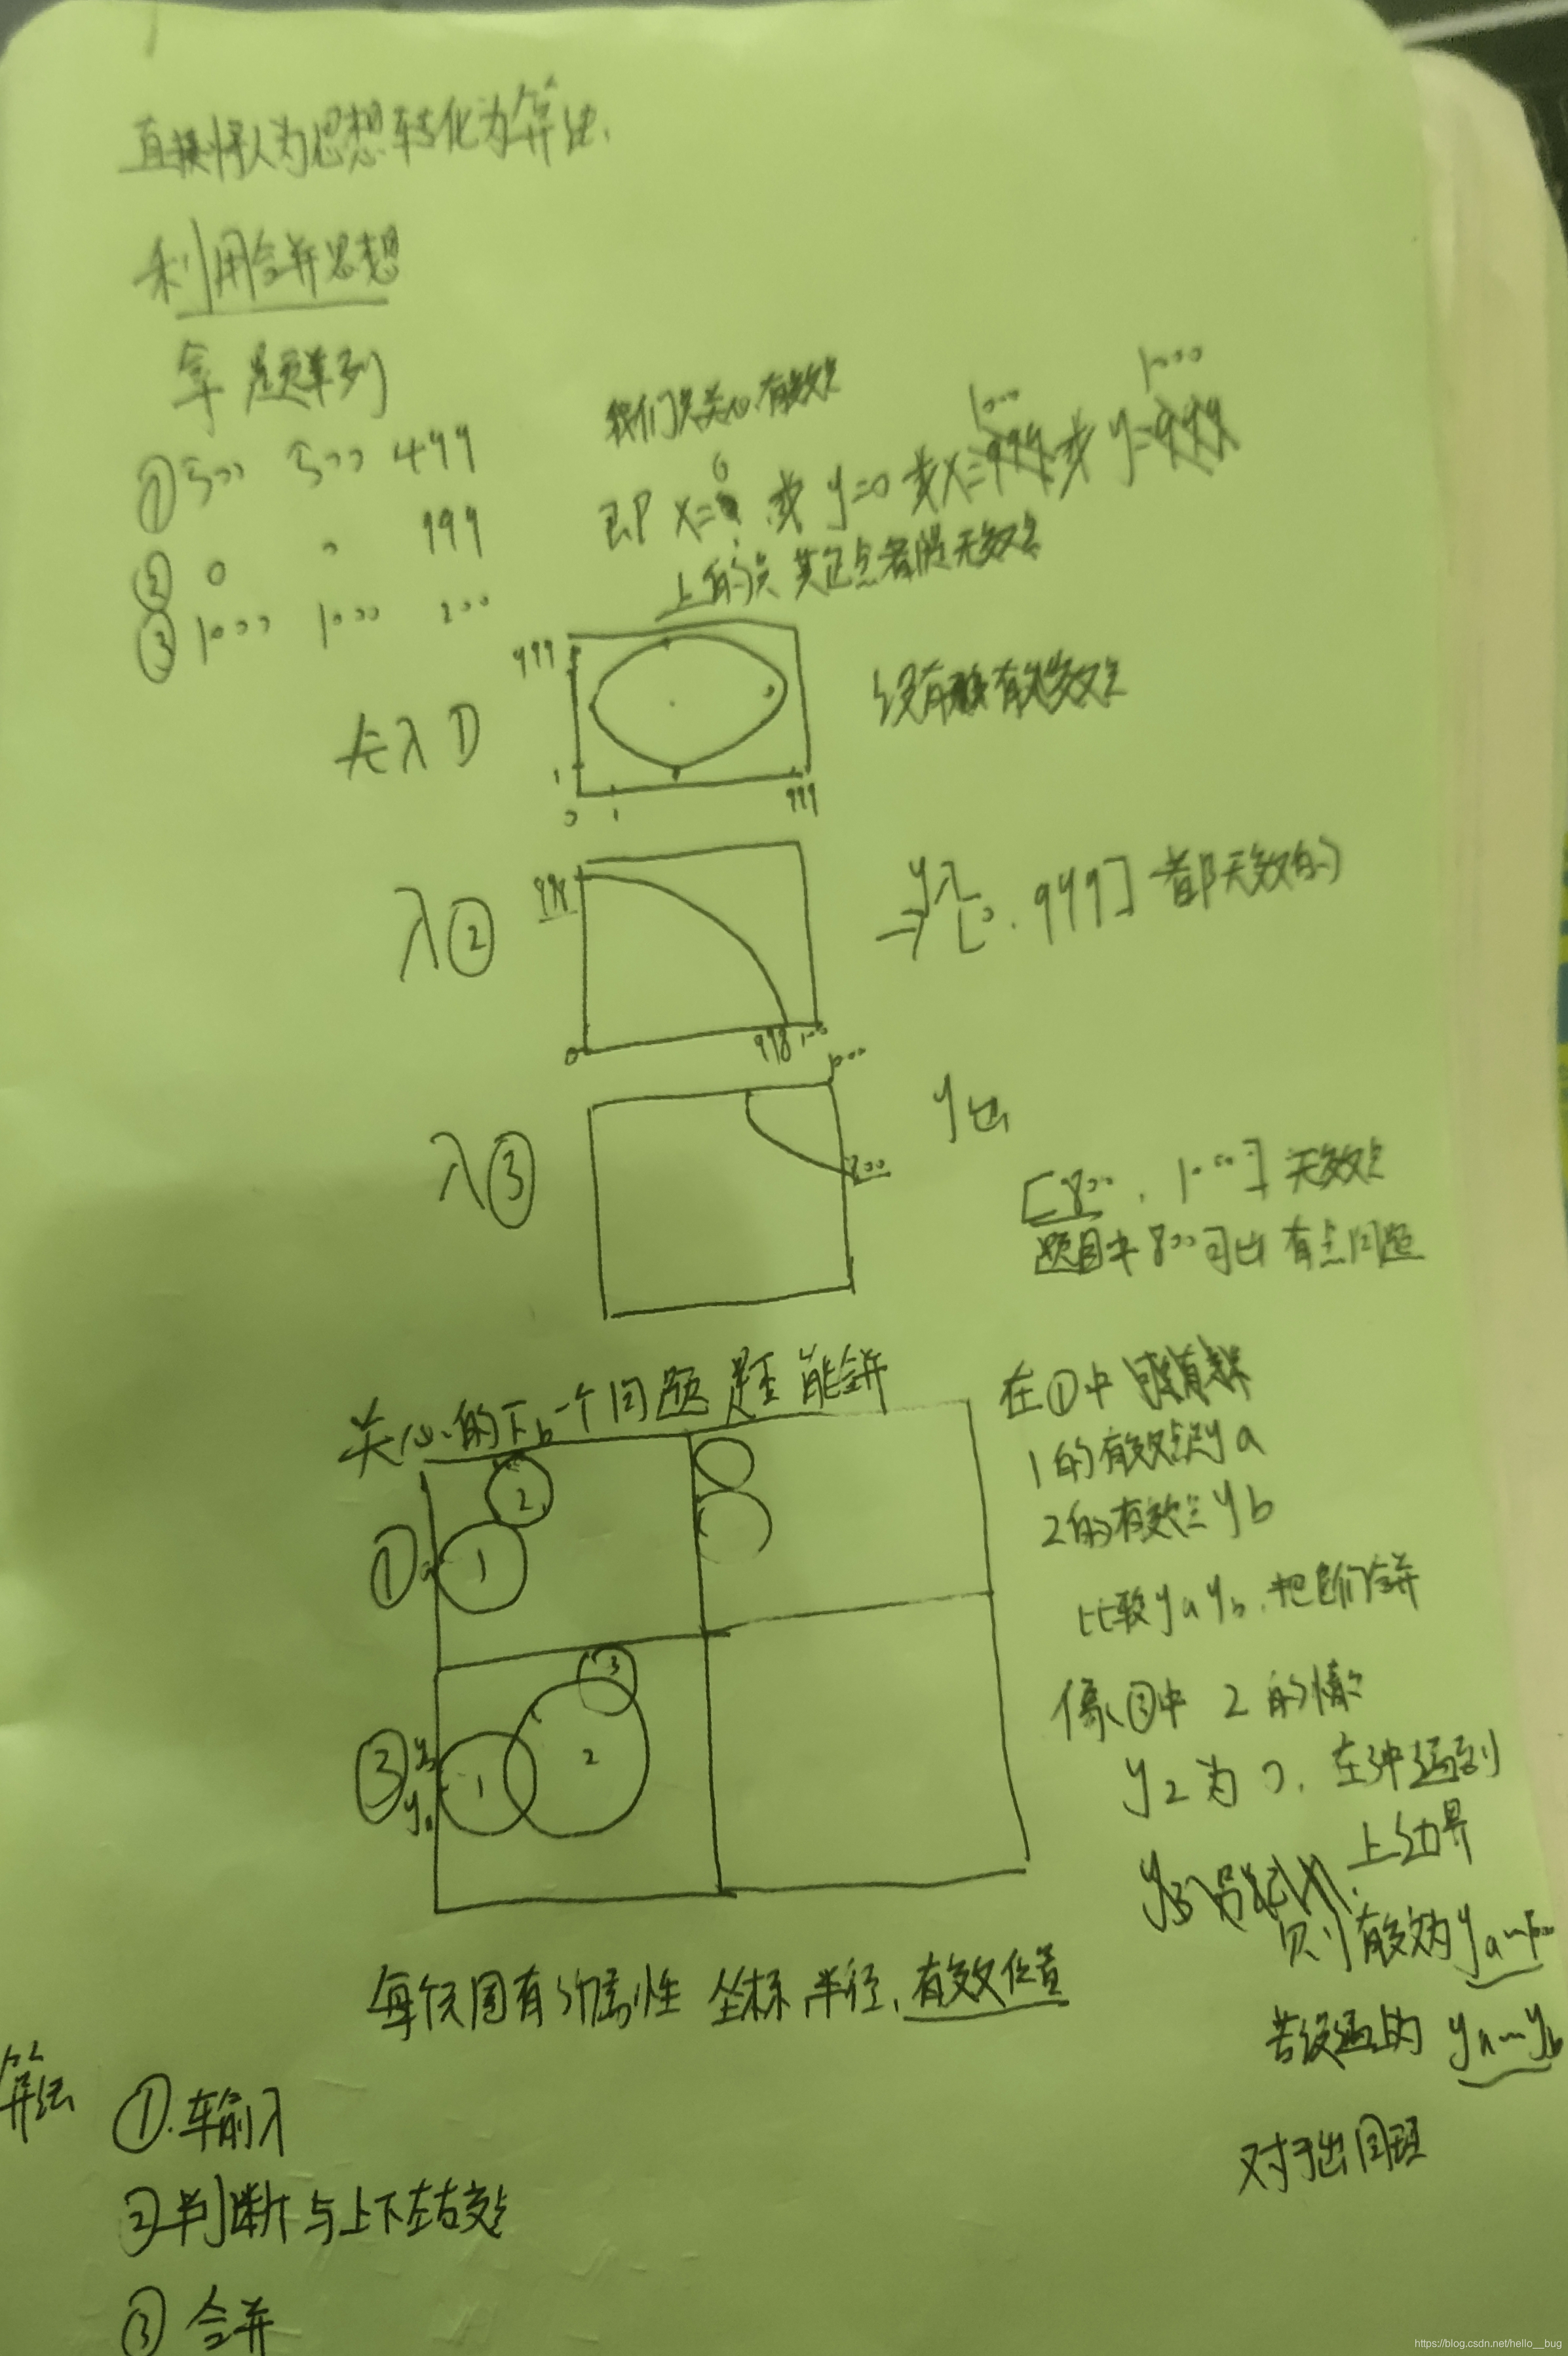 直接将人为思想转化为算法.
利用合并思想
拿题举例
① 500 500 499
② 0 0 999
③ 1000 1000 200
我们只关心有效点
1000 1000
即 x=0 或 y=0 或 x=999 或 y=999
上的点 其它点都是无效点
999
1
0 1 999
入①
没有有效点
入②
0 998 1000
y入
→ [0, 999] 都无效的
入③
1000
800
y出
[800, 1000] 无效点
题目中 800可出 有点问题
关心的下一个问题 是否能合并
① a 1 2
③ 1 2 3
在①中
1的有效点 ya
2的有效点 yb
比较 ya yb, 把它们合并
像③中 2的情况
y2 为 0,
上边界
则有效为 ya~1000
若没遇上的 ya~yb
对于出同理
每个元固有的属性 坐标 半径, 有效位置
算法
①. 输入
② 判断 与上下左右交点
③ 合并
https://blog.csdn.net/hello__bug